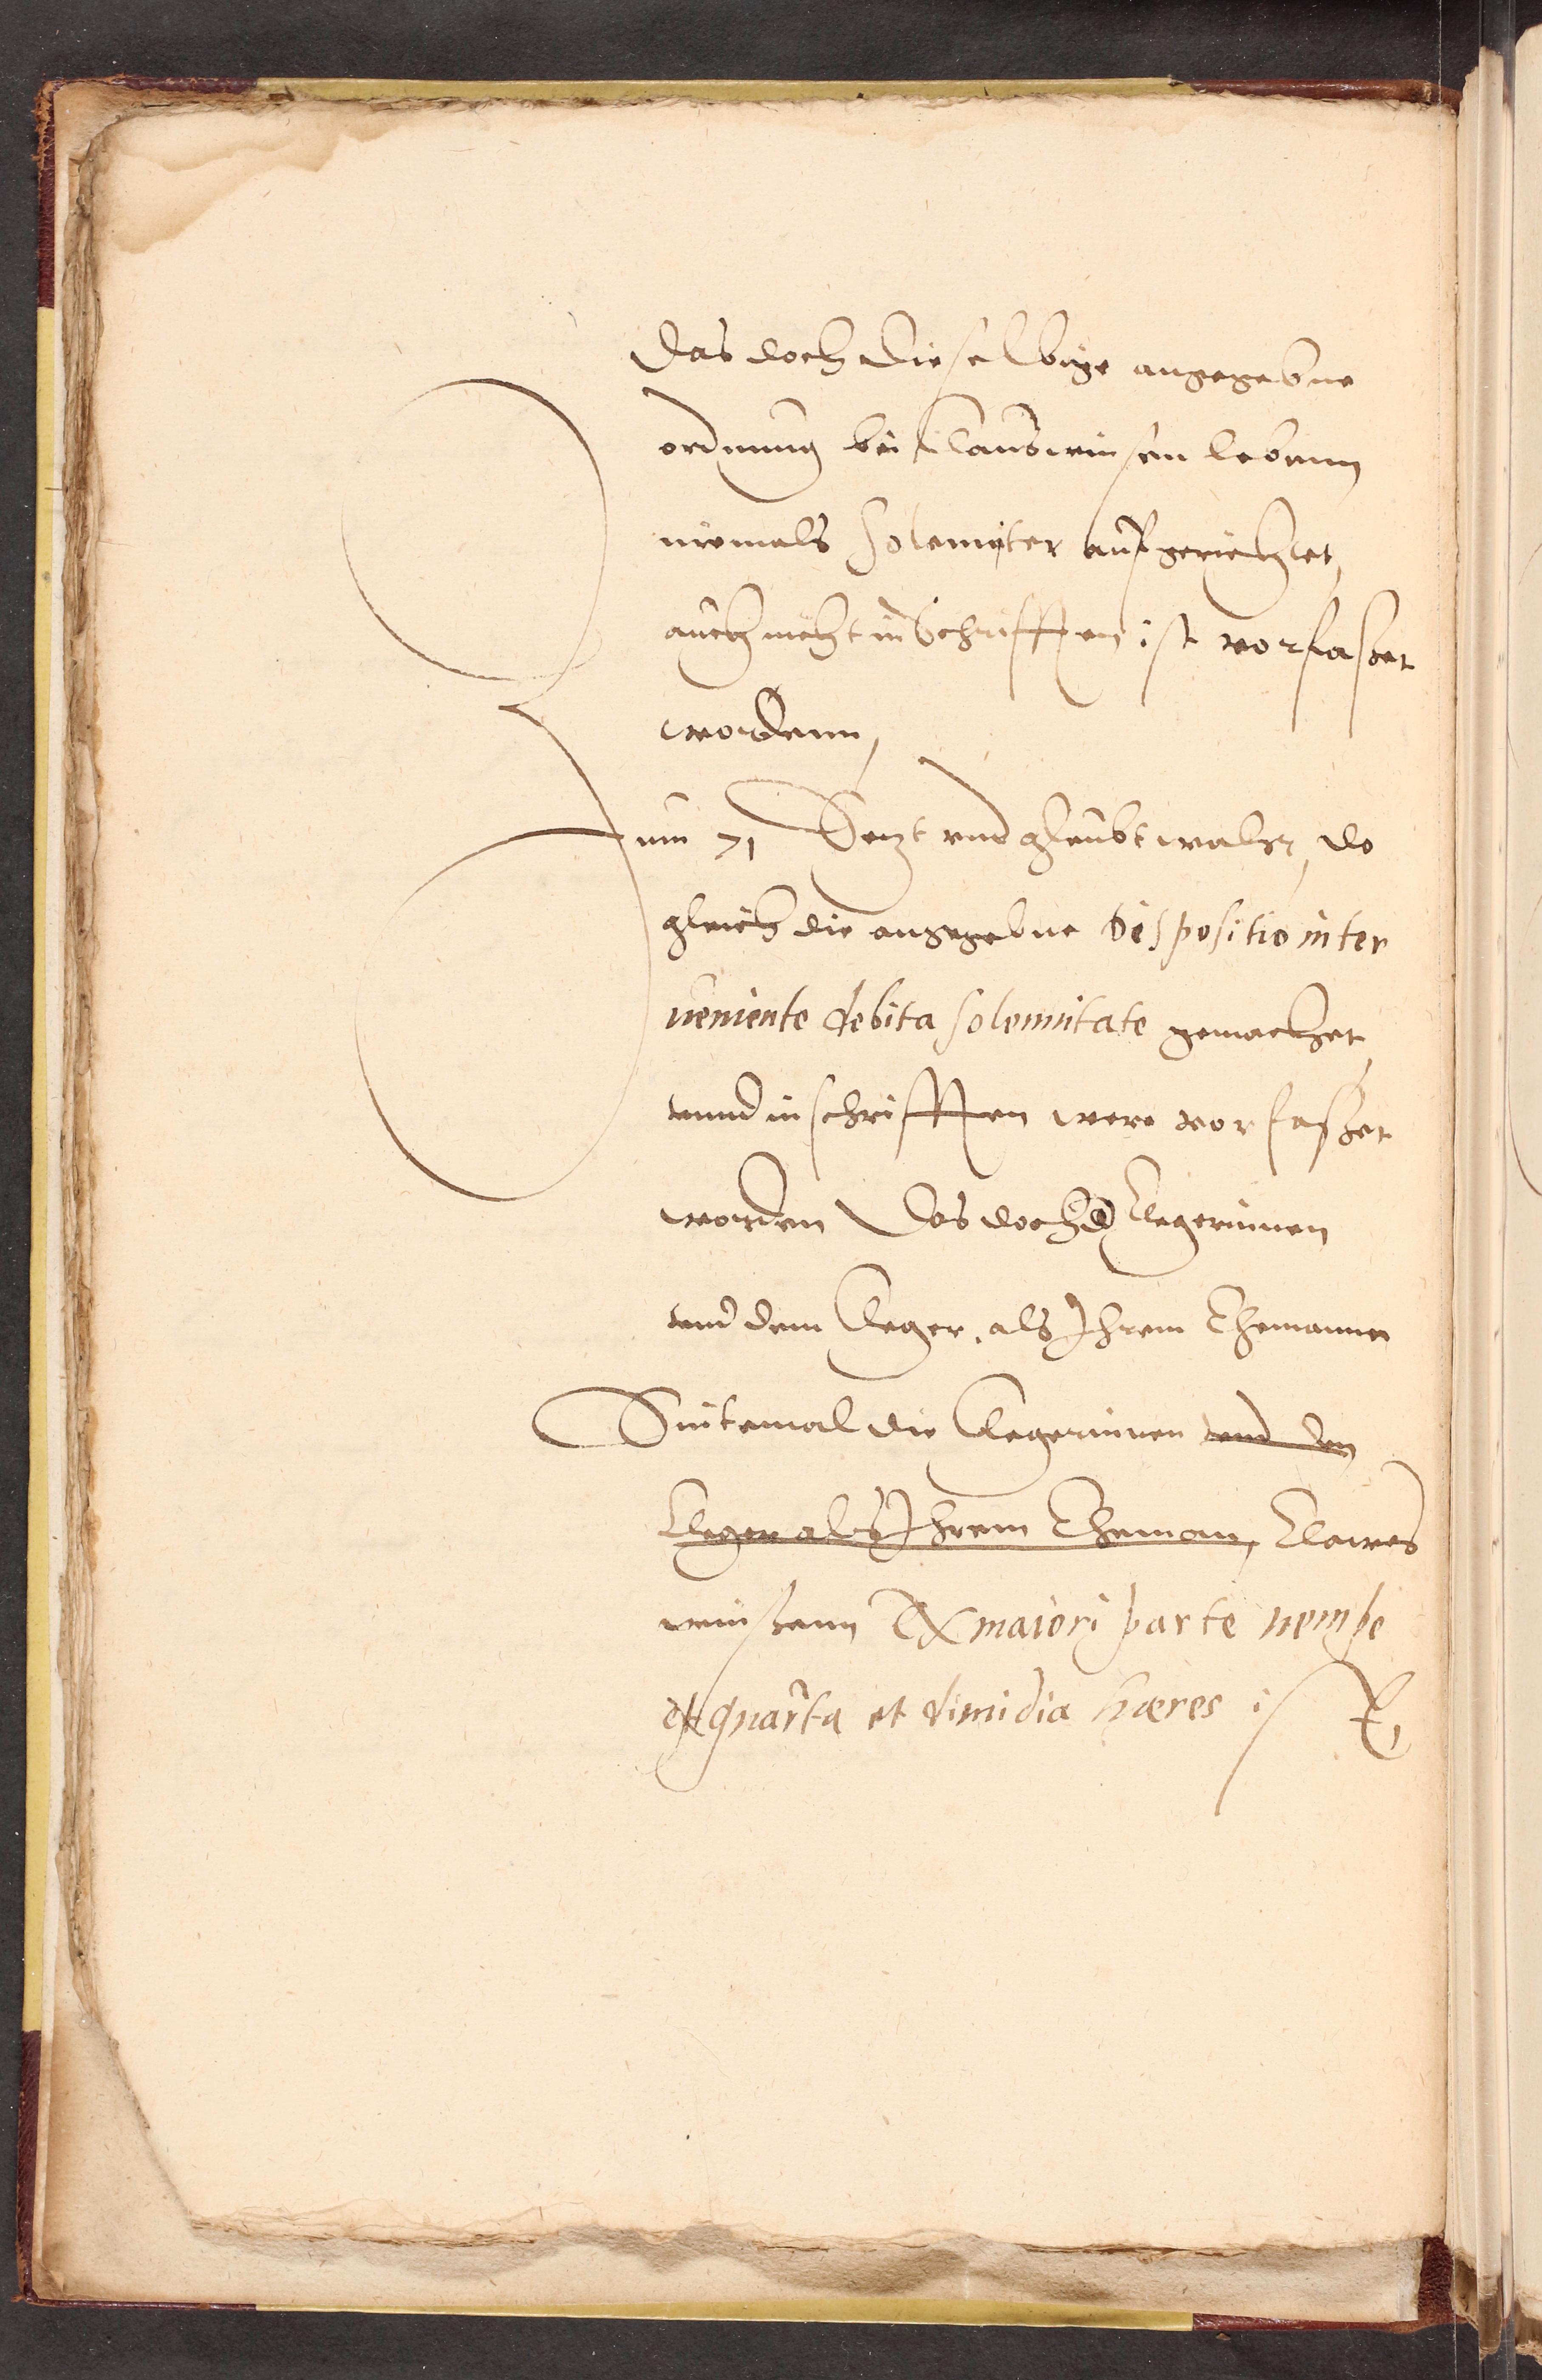 Das doch dieselbige angegebne
ordnung bei Clausweinsen lebenn
niemals solemniter aufgerichtet,
auch nicht in Schrifften ist vorfasset
wordenn,
Zum 71 Setzt vnd gleubt wahr, do
gleich die angegebne dispositio inter
ueniente debita solemnitate gemachet,
vnnd in schrifften were vorfasset
worden Das doch d Clegerinnen
vnd dem Cleger, als Ihrem Ehemanne
Sintemal die Clegerinnen vnd den
Cleger als Ihrem Eheman, Clawes
weinsenn Ex maiori parte nempe
ex quarta et dimidia hæres ist